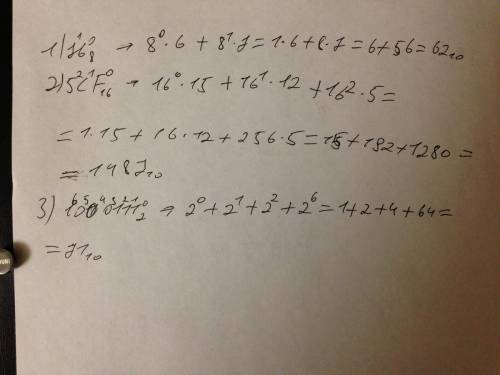 1) 7¹6⁰₈ → 8⁰·6 + 8¹·7 = 1·6 + 8·7 = 6 + 56 = 62₁₀
2) 5²C¹F⁰₁₆ → 16⁰·15 + 16¹·12 + 16²·5 =
= 1·15 + 16·12 + 256·5 = 15 + 192 + 1280 =
= 1487₁₀
3) 1⁶0⁵0⁴0³1²1¹1⁰₂ → 2⁰ + 2¹ + 2² + 2⁶ = 1 + 2 + 4 + 64 =
= 71₁₀